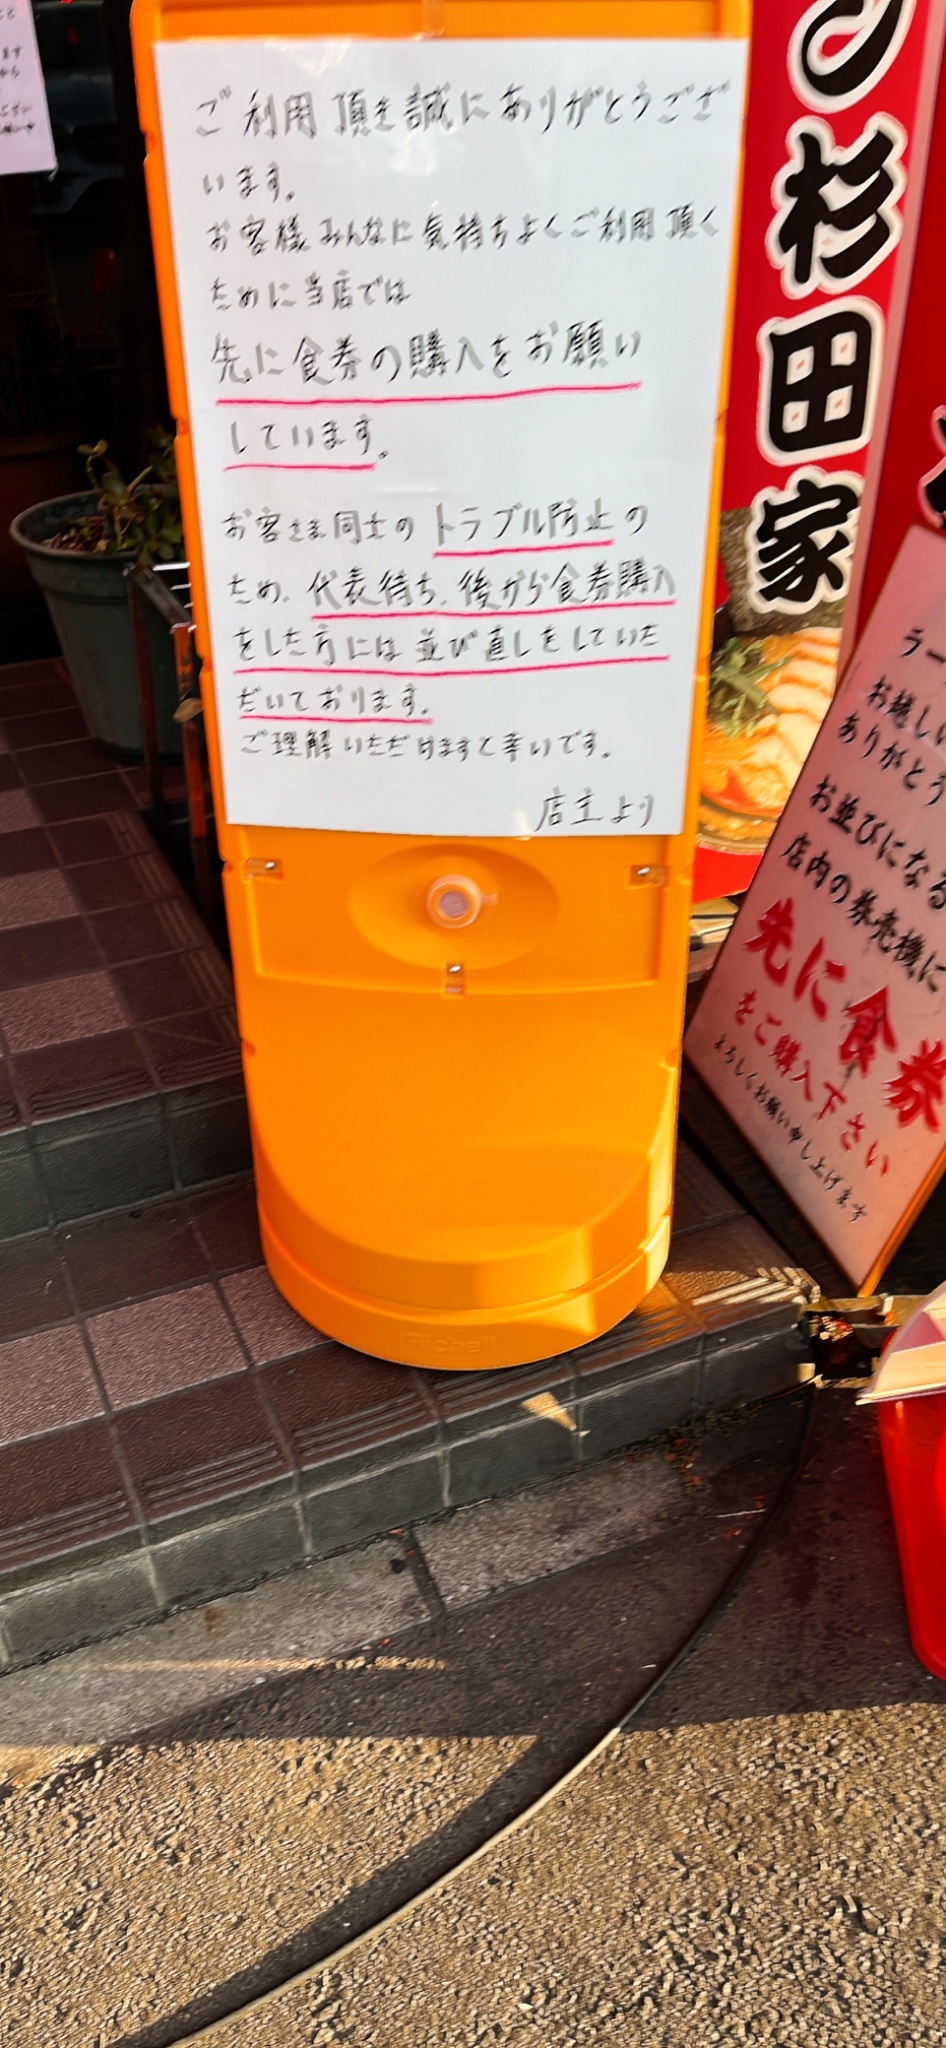 ご利用頂き誠にありがとうござ
います。
お客様みんなに気持ちよくご利用頂く
ために当店では
先に食券の購入をお願い
しています。
お客さま同士のトラブル防止の
ため、代表待ち、後から食券購入
をした方には並び直しをしていた
だいております。
ご理解いただけますと幸いです。
店主より
杉田家
ラー
お越しい
ありがとう
お並びになる
店内の券売機に
先に食券
をご購入下さい
よろしくお願い申し上げます
Richell